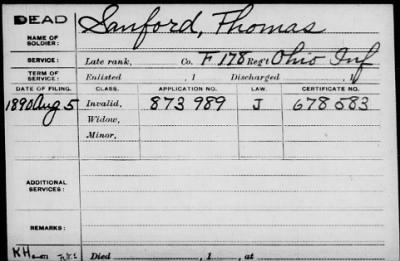 DEAD
NAME OF SOLDIER: Sanford, Thomas
SERVICE: Late rank, Co. F 178 Reg't Ohio Inf
TERM OF SERVICE: Enlisted , 1 Discharged , 1
DATE OF FILING. CLASS. APPLICATION NO. LAW. CERTIFICATE NO.
1890 Aug 5 Invalid, 873 989 J 678 583
Widow,
Minor,
ADDITIONAL SERVICES:
REMARKS:
Died , 1 , at